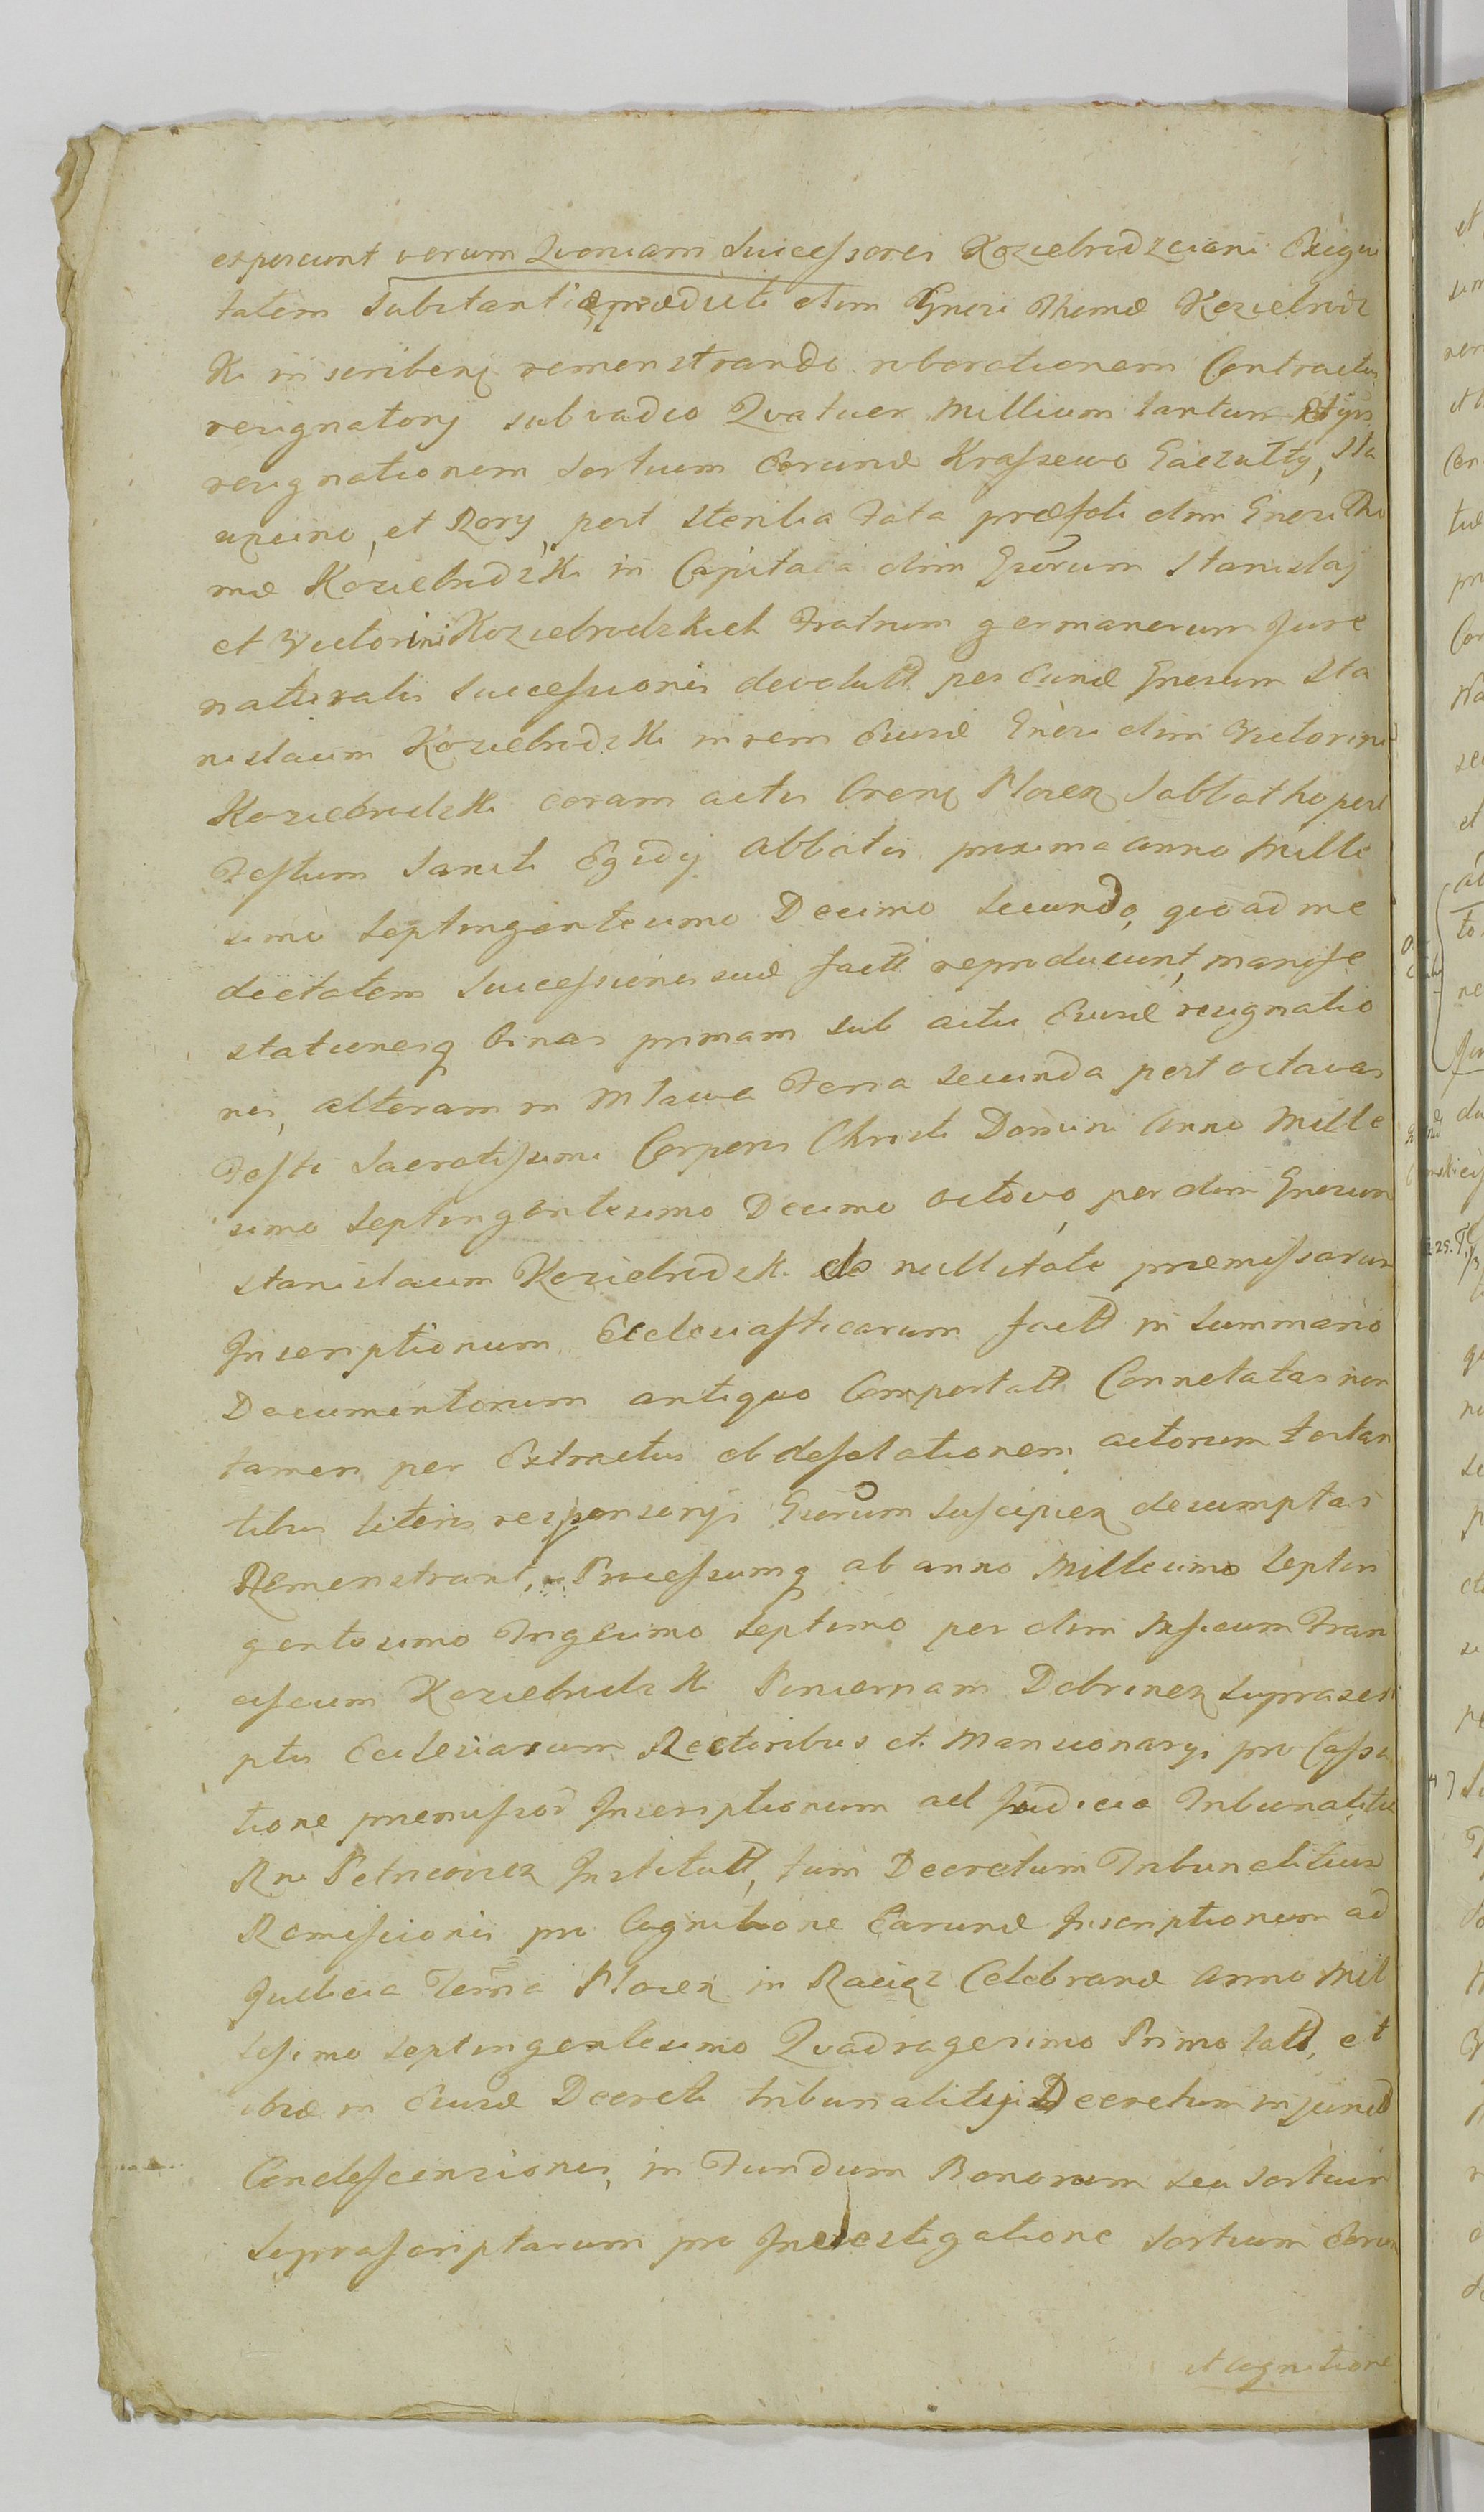 exposcunt verum Quoniam Successores Koziebrodzciani Exigui
tatem Substantiæ prædicti olim Gnosi Thomæ Koziebrodz
ki inscribenꝗ remonstrando roborationem Contractus
resignatorij sub vadio Quatuor Millium tantum
resignationem Sortium Earund Krassewo Gaczułty, Sta
upcino, et Rory, post Sterilia Fata præfati olim Gnosi Tho
mæ Koziebrodzki in Capita olim Gsorum Stanislaj
et Victorini Koziebrodzkich Fratrum germanorum Jure
naturalis Successionis devolutt per Eund Gnosum Sta
nislaum Koziebrodzki in rem Eiusd Gnosi olim Victorini
Koziebrodzki coram actis Plocen Sabbatho post
Festum Sancti Egidij Abbatis proximo anno Mille
simo Septingentesimo Decimo Secundo, quo ad me
dietatem Successionis suæ factt reproducunt, manife
stationesq binas primam sub actu Eiusd resignatio
nis, alteram in Mlawa Feria Secunda post octavas
Festi Sacratissimi Corporis Christi Domini Anno Mille
simo Septingentesimo Decimo octavo, per olim Gnosum
Stanislaum Koziebrodzki de nullitate præmissarum
Inscriptionum Ecclesiasticarum factt in Summario
Documentorum antiquo Comportatt Connotatas non
tamen per Extractus ob desolationem actorum testan
tibus literis responsorijs Gsorum Suscipien desumptas
Remonstrant, Processumq ab anno Millesimo Septin
gentesimo Trigesimo Septimo per olim Msicum Fran
ciscum Koziebrodzki Pincernam Dobrinen Suprascri
ptis Ecclesiarum Rectoribus et Mansionarijs pro Cassa
tione præmissor Inscriptionum ad Judicia Tribunalitia
Rni Petricovien Institutt, tum Decretum Tribunalitium
Remissionis pro Cognitione Earund Inscriptionum ad
Judicia Terria Plocen in Raciąż Celebrand Anno Mil
lesimo Septingentesimo Quadragesimo Primo latt, et
ibid in Eiusd Decreti tribunalitij Decretum
Condescensionis, in Fundum Bonorum seu Sortium
Suprascriptarum pro Investigatione Sortium Earun
et cognitione